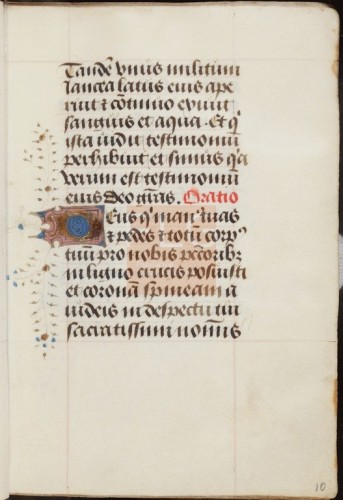 Tandē vnus militum
lancea latus eius ape
ruit ⁊ cōtinuo exiuit
sanguis et aqua. Et q̄
ista uidit testimoniū
perhibuit et scimus q̄a
verum est testimoniū
eius Deo gr̄as. Oratio
Deus q̄ man' tuas
⁊ pedes ⁊ totū corpꝰ
tuū pro nobis pc̄toribꝫ
in ligno crucis posuisti
et coronā spineam a
iudeis in despectū tui
sacratissimi nominis
10